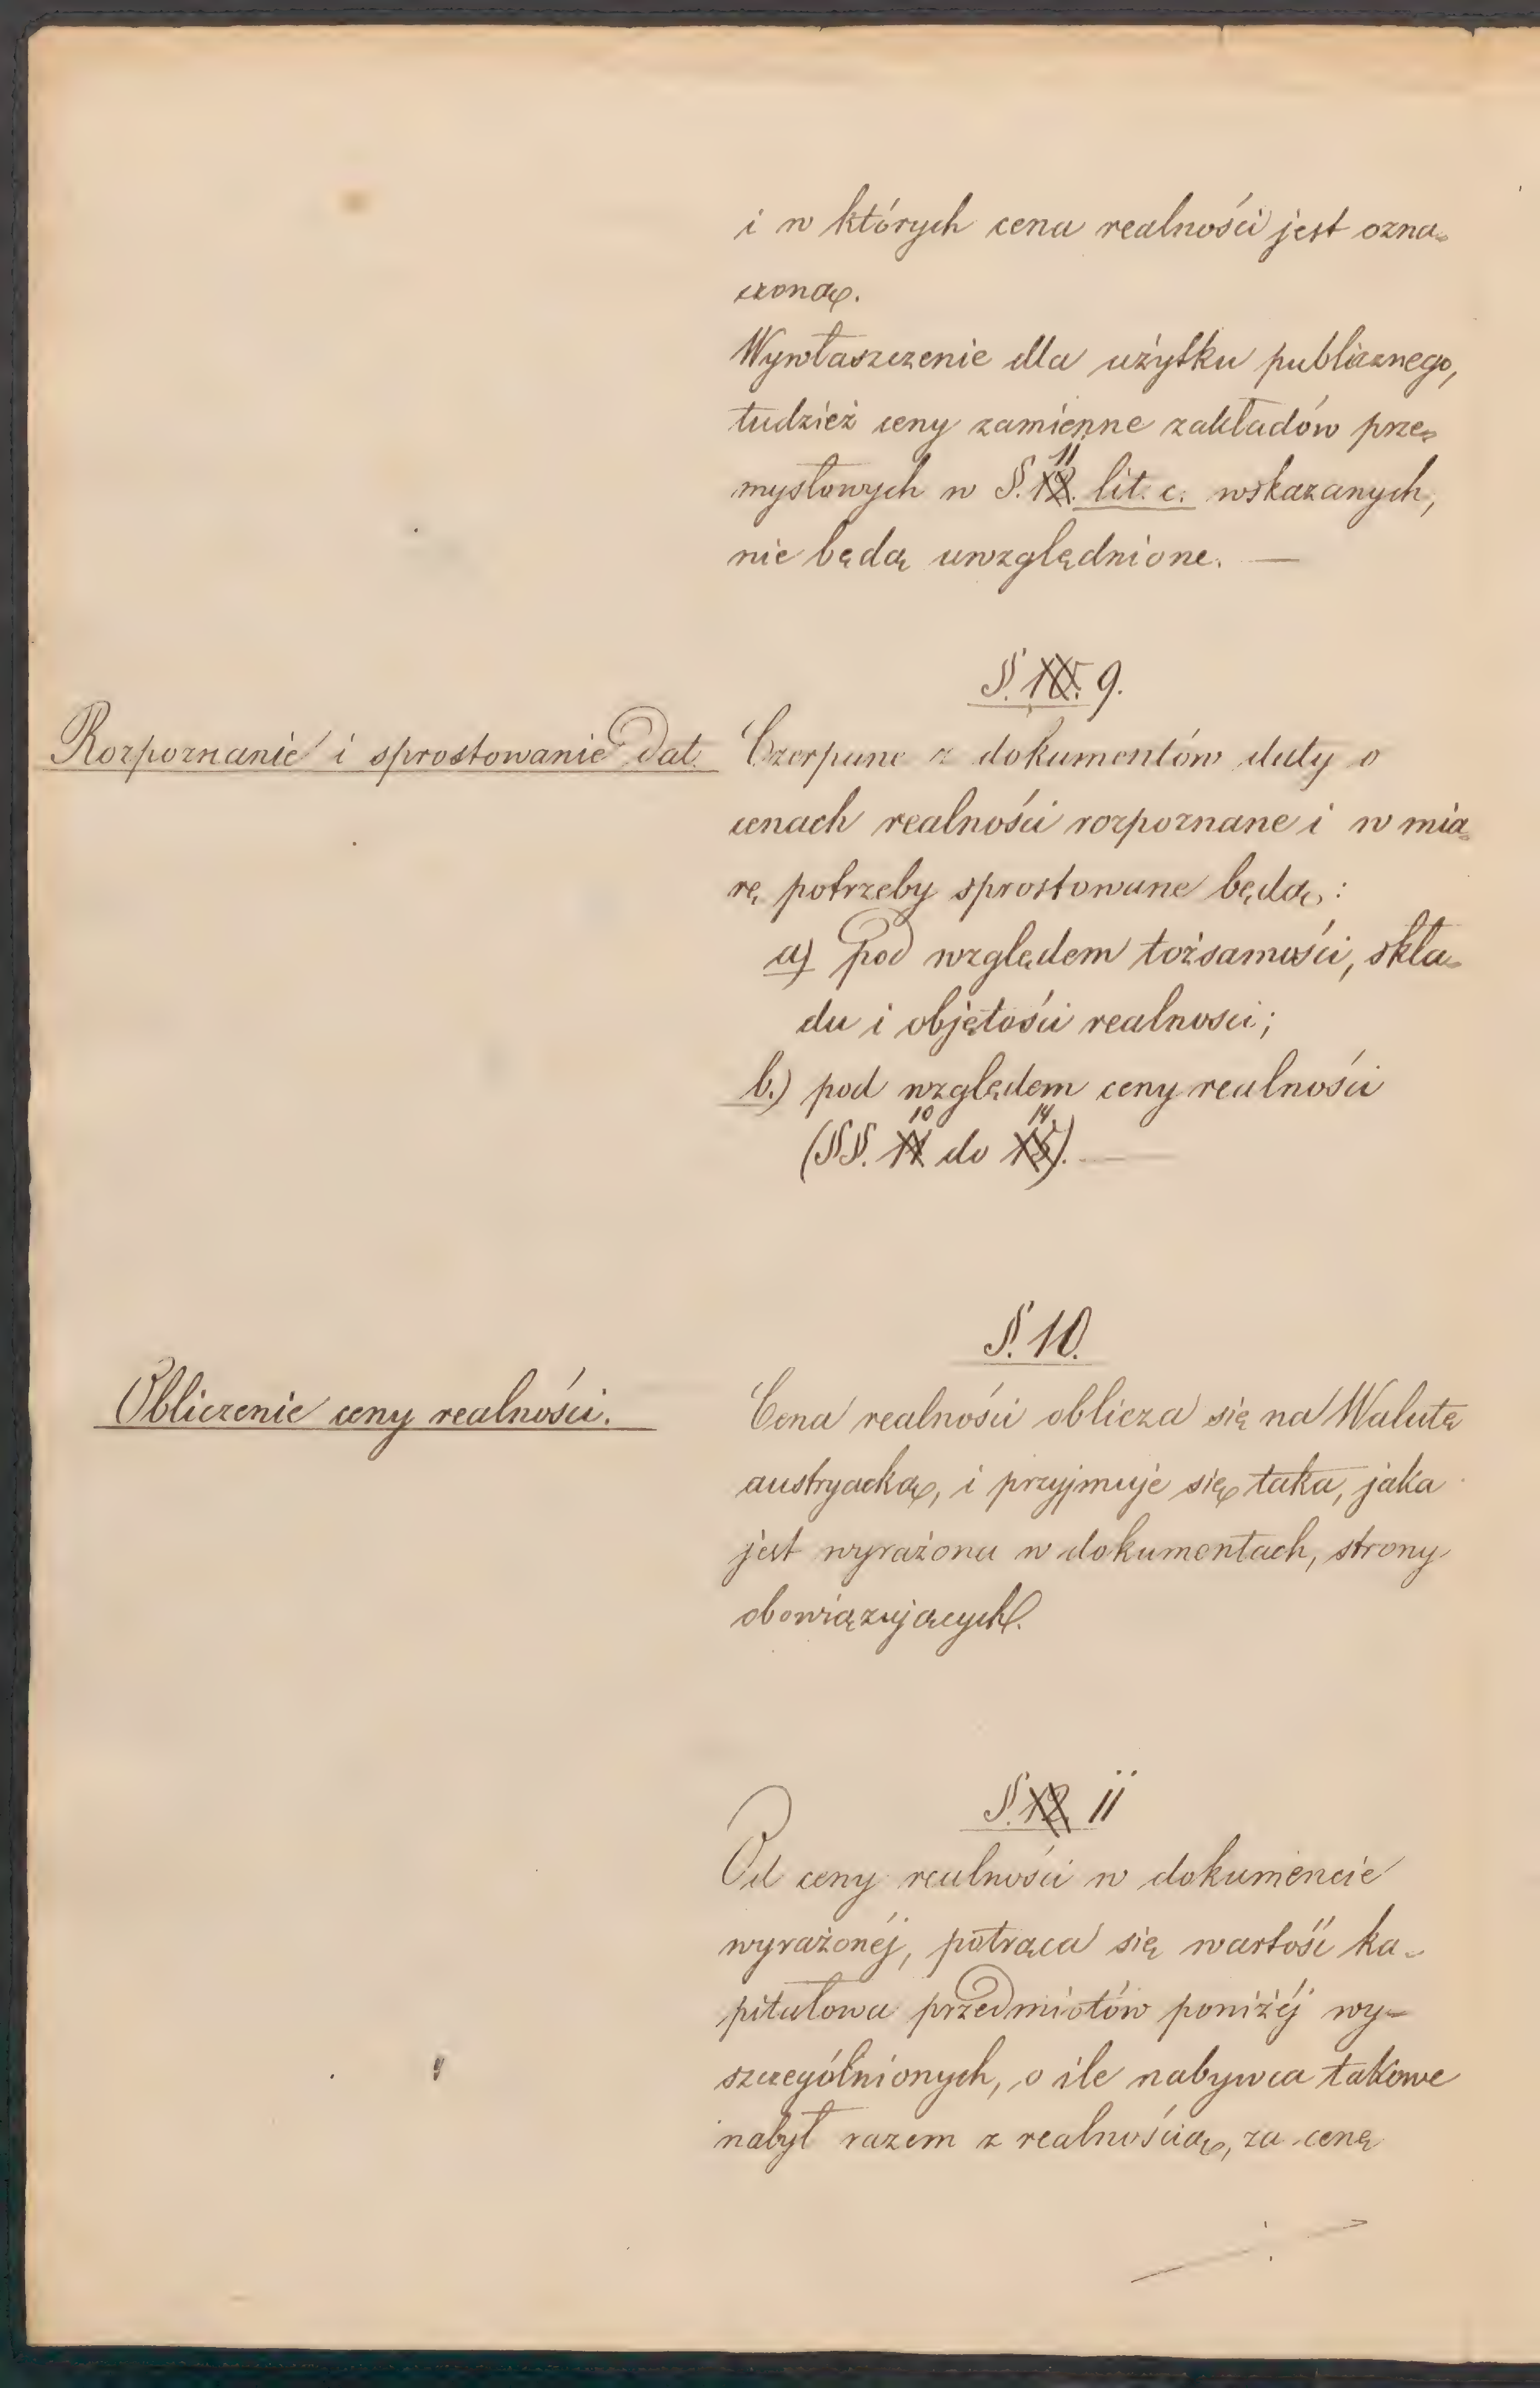 i w których cena realności jest ozna-
czoną.
Wywłaszczenie dla użytku publicznego,
tudzież ceny zamienne zakładów prze-
11
mysłowych w §. 12. lit. c. wskazanych,
nie będą uwzględnione. —
§. 10. 9.
Rozpoznanie i sprostowanie dat.
Czerpane z dokumentów daty o
cenach realności rozpoznane i w mia-
rę potrzeby sprostowane będą:
a) pod względem tożsamości, skła-
du i objętości realności;
b.) pod względem ceny realności
10 14.
(§§. 11 do 15). —
§. 10.
Obliczenie ceny realności.
Cena realności oblicza się na Walutę
austryacką, i przyjmuje się taka, jaka
jest wyrażona w dokumentach, strony
obowiązujących.
§. 12. 11
Od ceny realności w dokumencie
wyrażonéj, potrąca się wartość ka-
pitałowa przedmiotów poniżéj wy-
szczególnionych, o ile nabywca takowe
nabył razem z realnością, za cenę